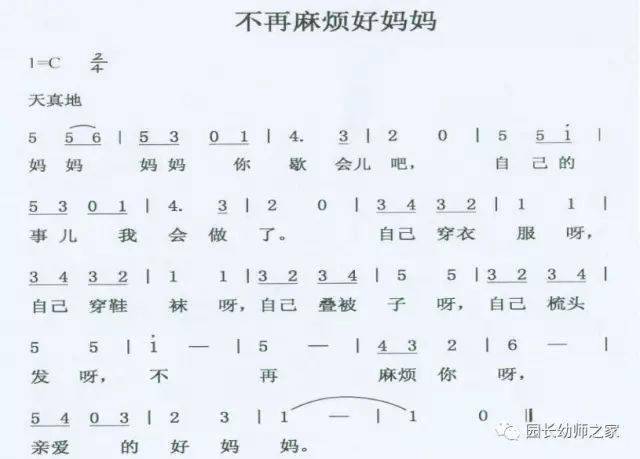 不再麻烦好妈妈
1=C 2/4
天真地
5 5 6 | 5 3 0 1 | 4. 3 | 2 0 | 5 5 i |
妈 妈 妈 妈 你 歇 会儿 吧， 自 己 的
5 3 0 1 | 4. 3 | 2 0 | 3 4 3 2 | 1 1 |
事 儿 我 会 做 了。 自己 穿衣 服 呀，
3 4 3 2 | 1 1 | 3 2 3 4 | 5 5 | 3 2 3 4 |
自己 穿鞋 袜 呀，自己 叠被 子 呀，自己 梳头
5 5 | i — | 5 — | 4 3 2 | 6 — |
发 呀， 不 再 麻烦 你 呀，
5 4 0 3 | 2 3 | 1 — | 1 0 ‖
亲爱 的 好 妈 妈。
园长幼师之家